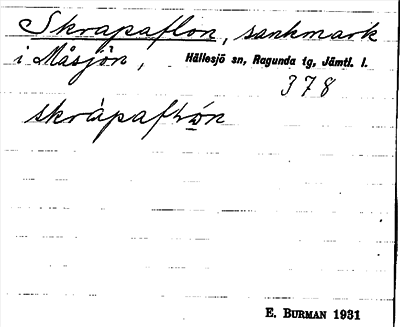 Skrapaflon, sankmark
i Måsjön, Hällesjö sn, Ragunda tg, Jämtl. l.
378
E. BURMAN 1931